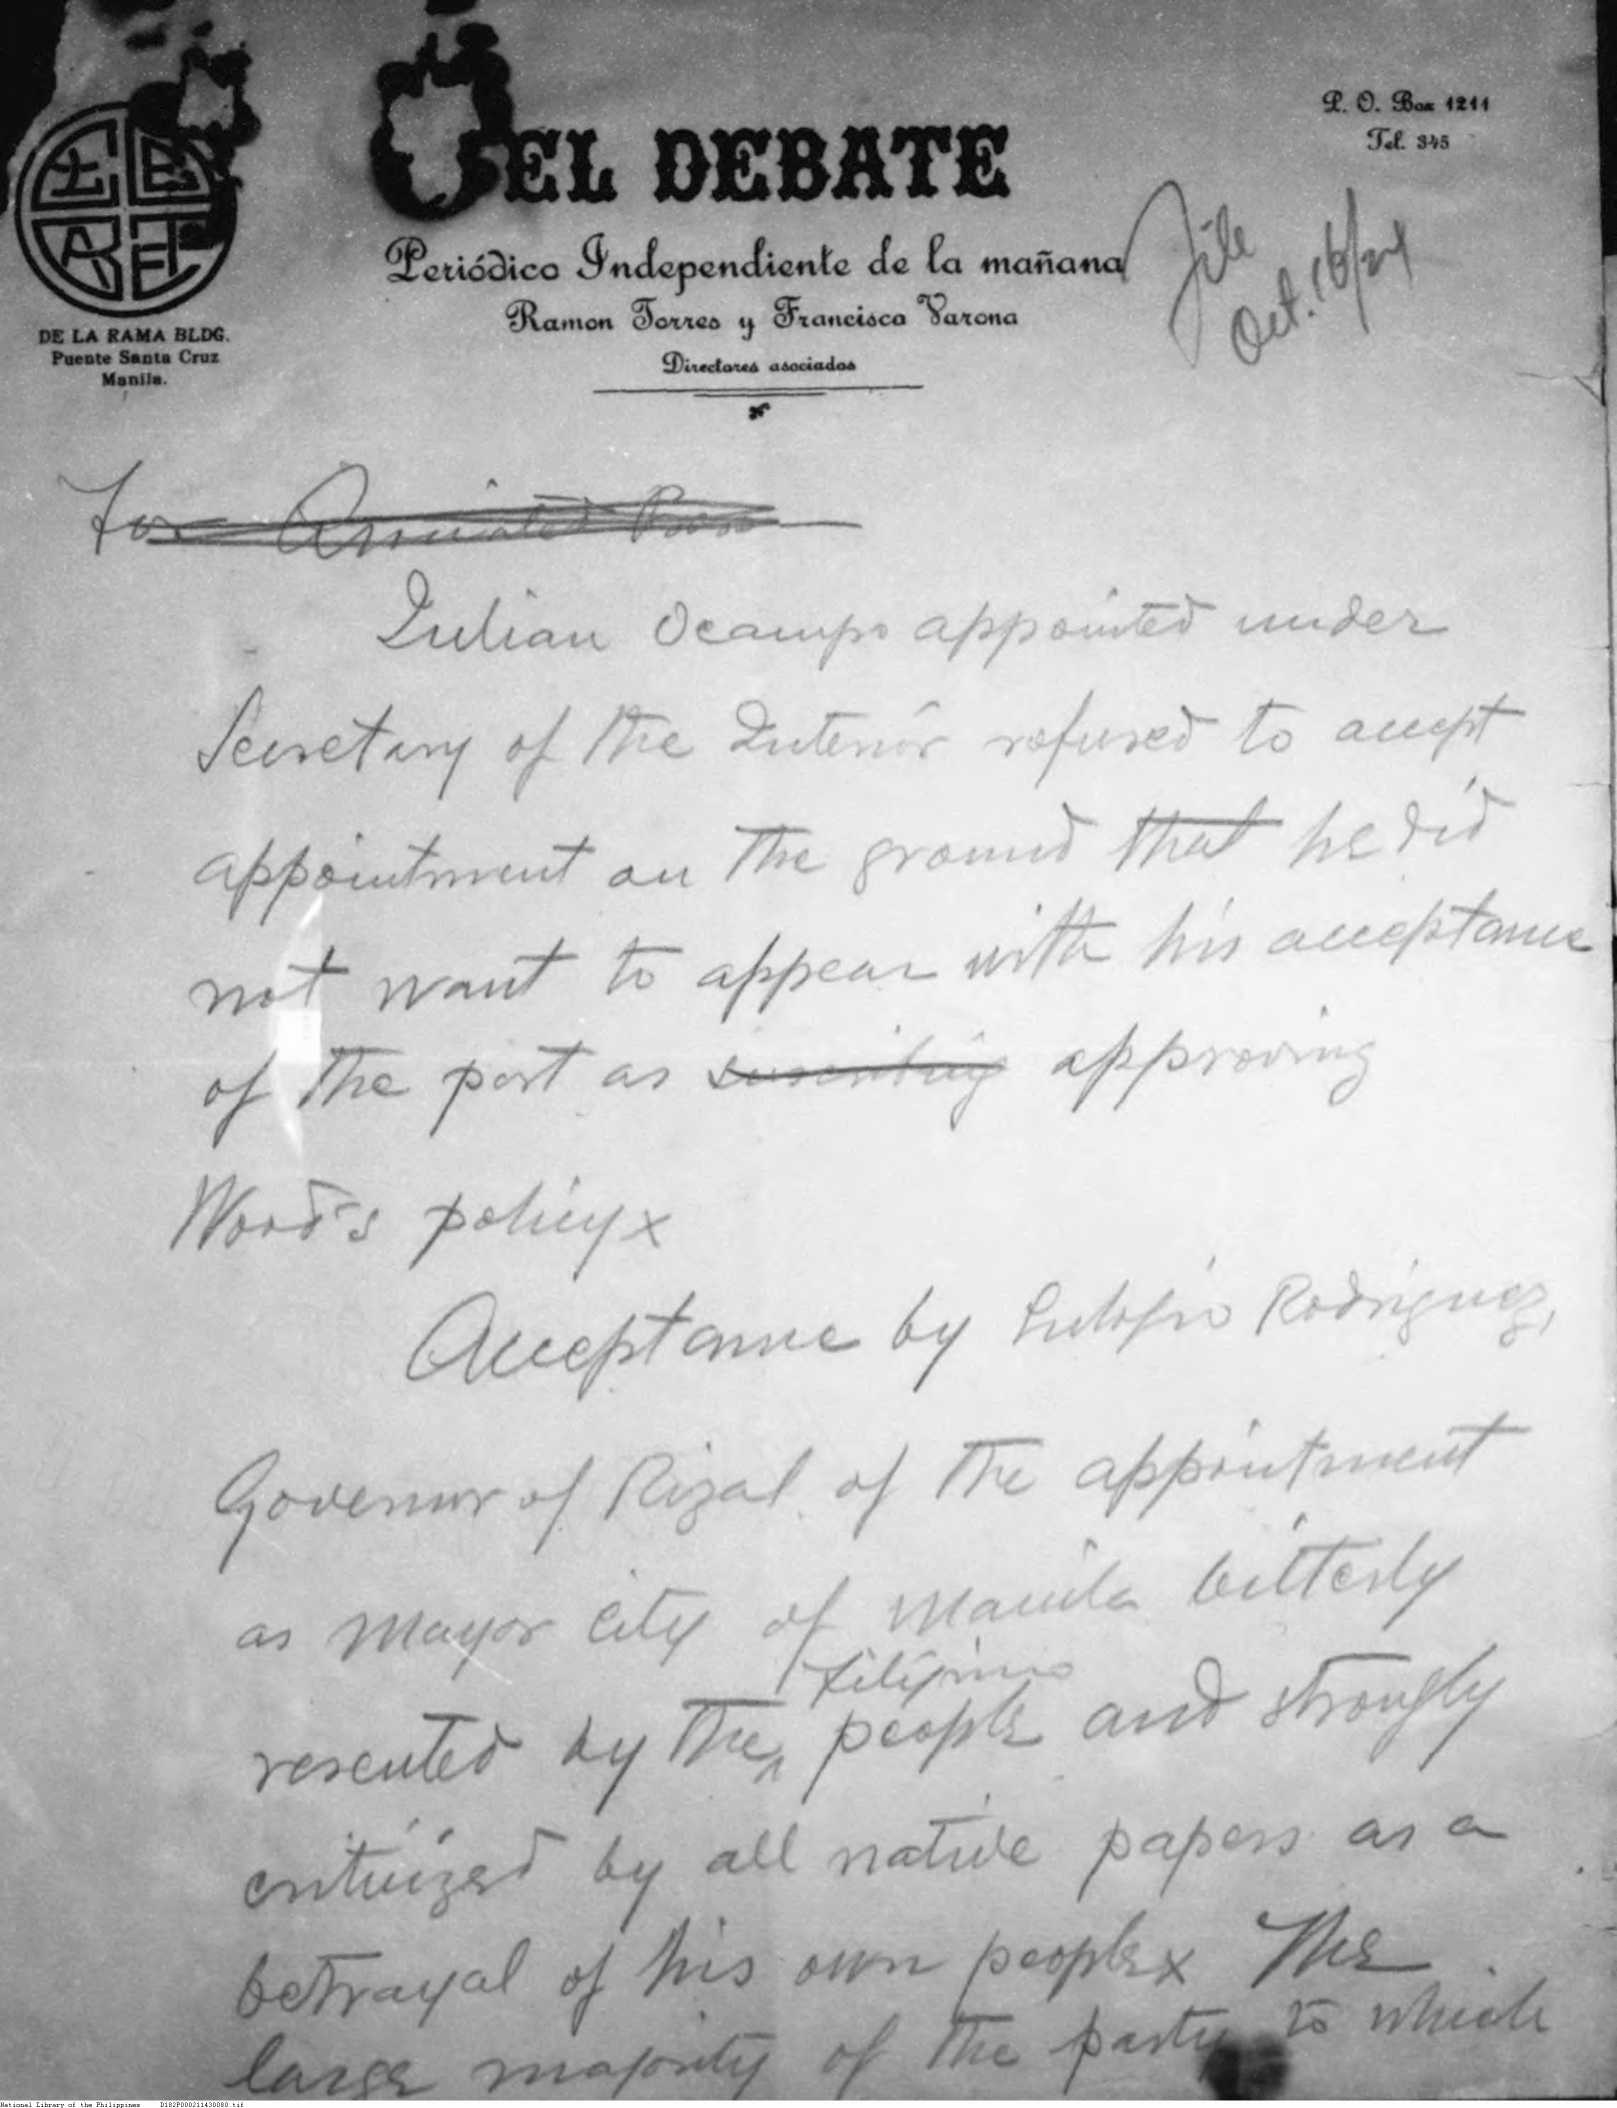 EL DEBATE
Periódico Independiente de la mañana
Ramon Torres y Francisco Varona
Directores asociados
P. O. Box 1211
Tel. 345
EL DEBATE
DE LA RAMA BLDG.
Puente Santa Cruz
Manila.
File
Oct. 16/24
For Associated Press
Julian Ocampo appointed under
Secretary of the Interior refused to accept
appointment on the ground that he did
not want to appear with his acceptance
of the post as approving
Wood's policy x
Acceptance by Eulogio Rodriguez,
Governor of Rizal of the appointment
as Mayor City of Manila bitterly
resented by the Filipino people and strongly
criticized by all native papers as a
betrayal of his own people x The
large majority of the party to which
National Library of the Philippines D182P000211430080.tif